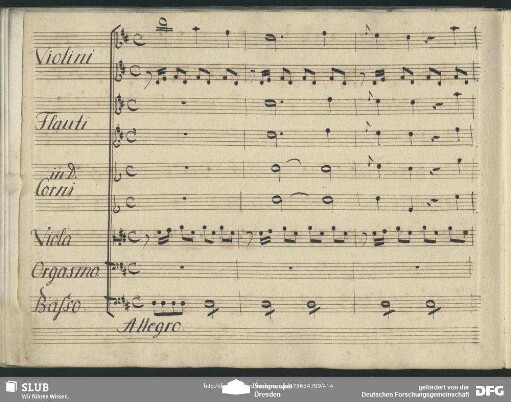 Violini
Flauti
in D.
Corni
Viola
Orgasmo
Basso.
Allegro
SLUB
Wir führen Wissen.
Dresden
gefördert von der
Deutschen Forschungsgemeinschaft
DFG